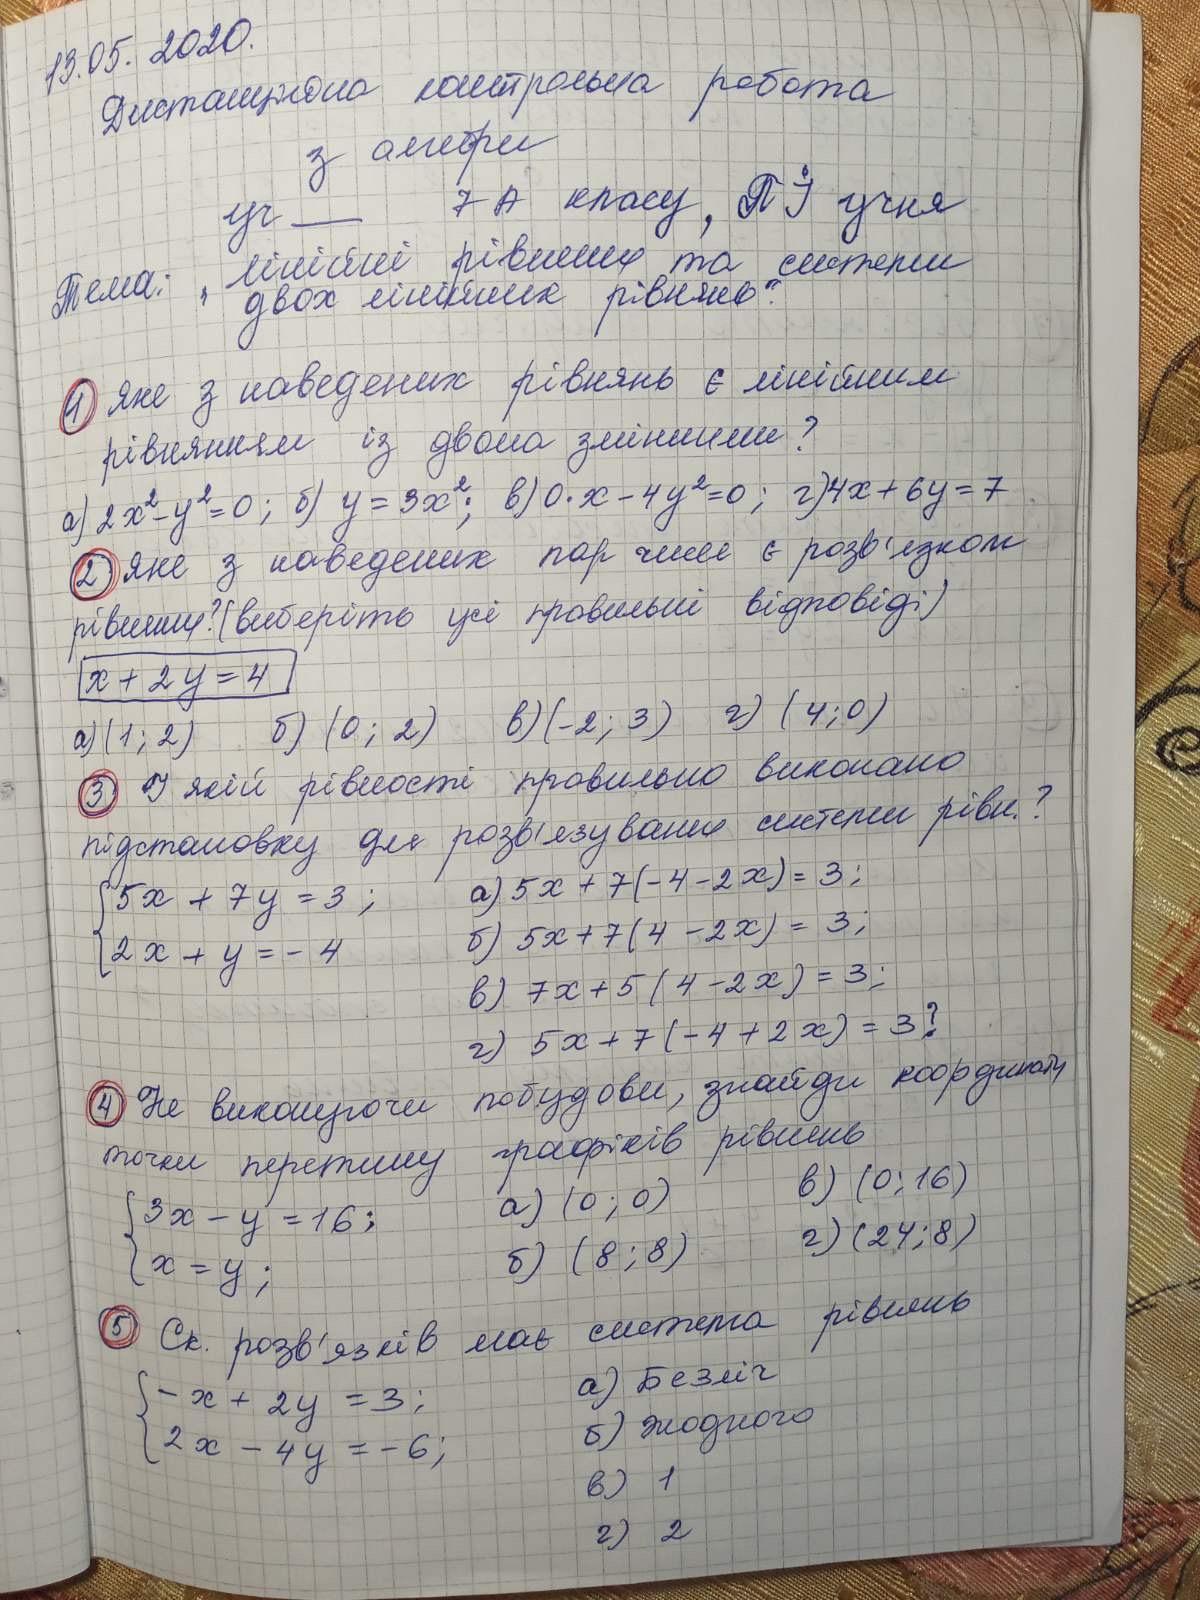 13.05.2020.
Дистанційна контрольна робота
з алгебри
уч___ 7 А класу, ПІ учня
Тема: „Лінійні рівняння та системи
двох лінійних рівнянь".
1 Яке з наведених рівнянь є лінійним
рівнянням із двома змінними?
а) 2x²-y²=0; б) y=3x²; в) 0·x-4y²=0; г) 4x+6y=7
2 Яке з наведених пар чисел є розв'язком
рівняння? (виберіть усі правильні відповіді)
x+2y=4
а) (1;2) б) (0;2) в) (-2;3) г) (4;0)
3 У якій рівності правильно виконано
підстановку для розв'язування системи рівн.?
{5x+7y=3; а) 5x+7(-4-2x)=3;
2x+y=-4 б) 5x+7(4-2x)=3;
в) 7x+5(4-2x)=3;
г) 5x+7(-4+2x)=3?
4 Не виконуючи побудови, знайди координати
точки перетину графіків рівнянь
{3x-y=16; а) (0;0) в) (0;16)
x=y; б) (8;8) г) (24;8)
5 Ск. розв'язків має система рівнянь
{-x+2y=3; а) Безліч
2x-4y=-6; б) жодного
в) 1
г) 2